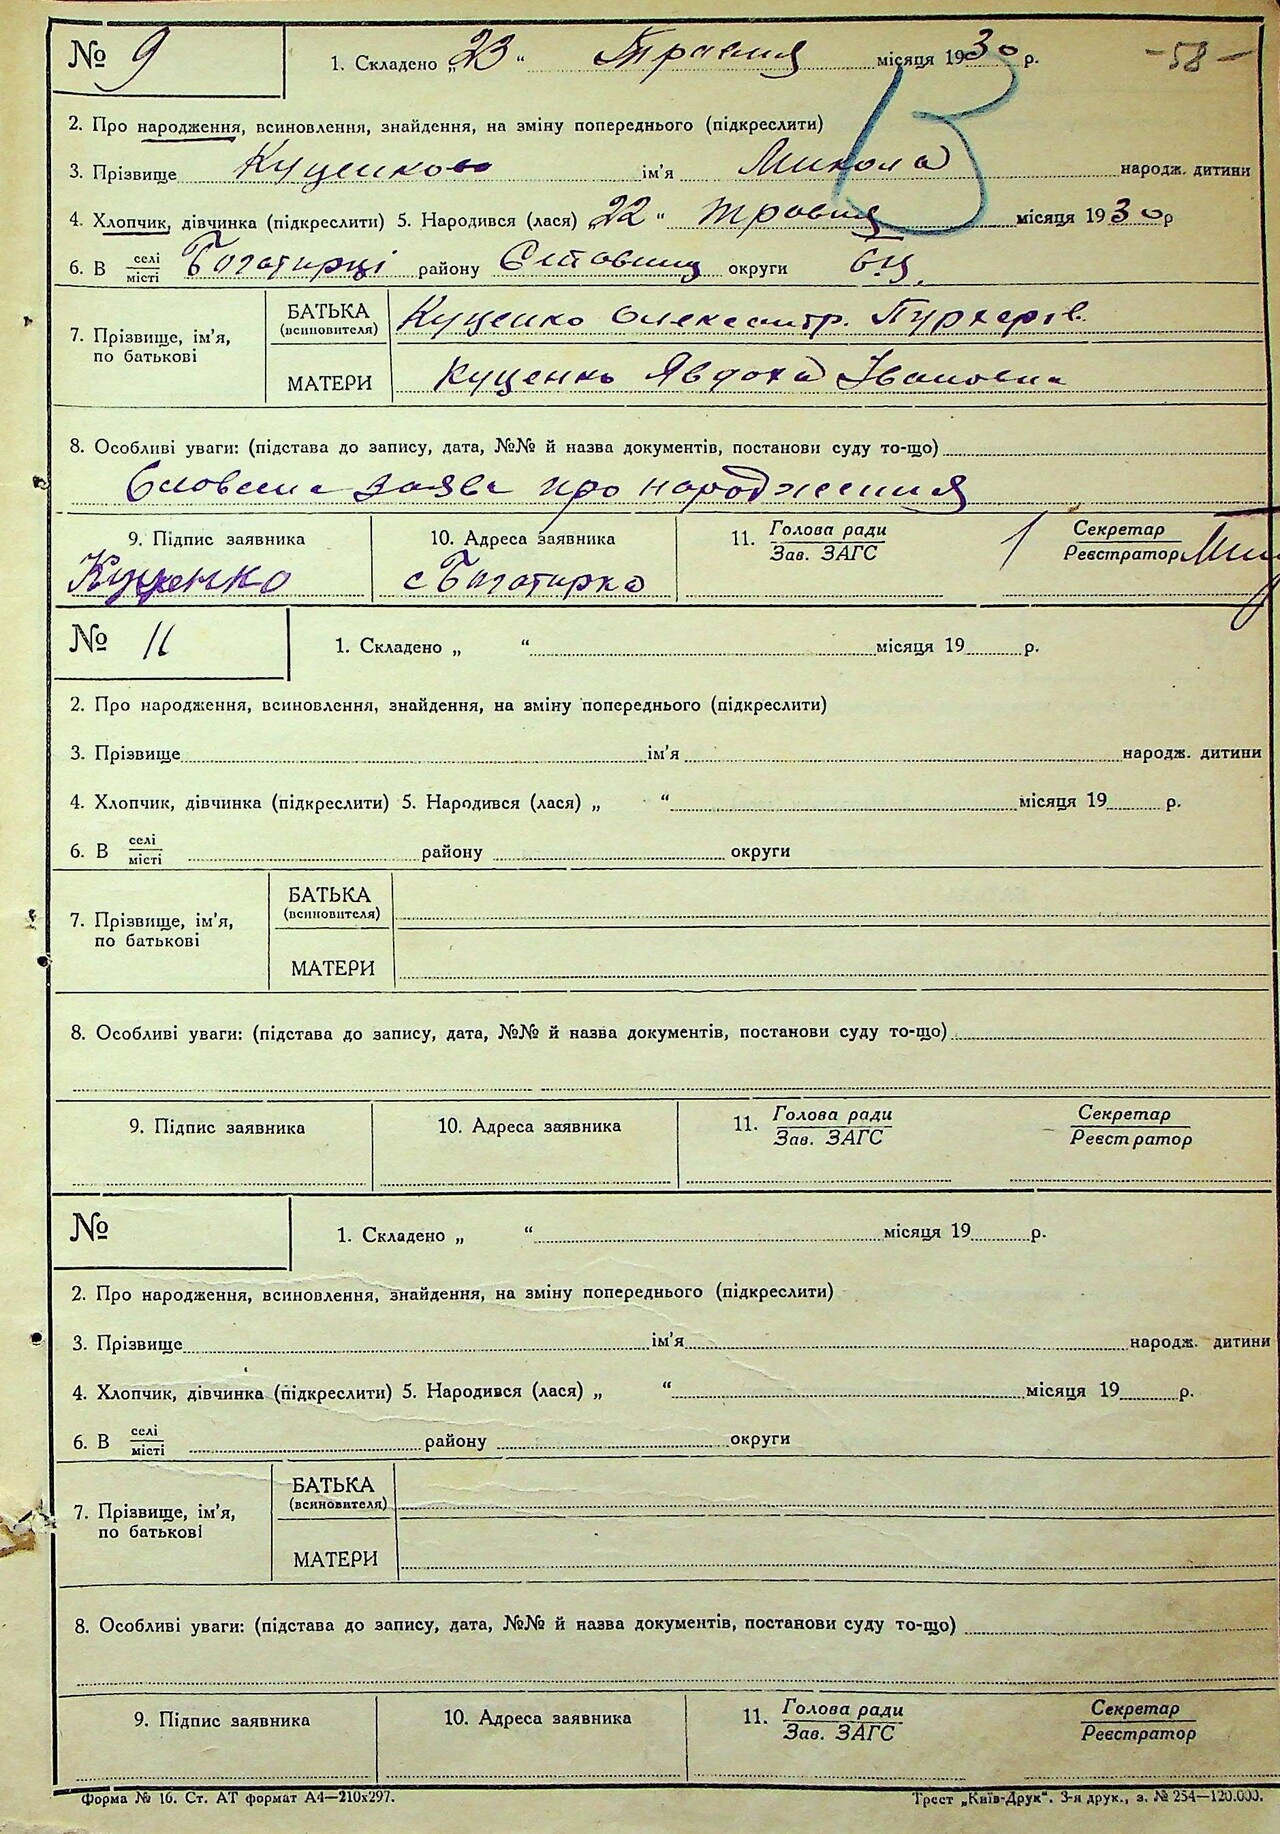 № 9 1. Складено „23“ Травня місяця 1930 р. -58-
В
2. Про народження, всиновлення, знайдення, на зміну попереднього (підкреслити)
3. Прізвище Куценково ім'я Микола народж. дитини
4. Хлопчик, дівчинка (підкреслити) 5. Народився (лася) „22“ травня місяця 1930 р
6. В селі/місті Богатирці району Ставищ округи БЦ.
7. Прізвище, ім'я, по батькові
БАТЬКА (всиновителя) Куценко Олександр.
МАТЕРИ Куценко Явдоха Івановна
8. Особливі уваги: (підстава до запису, дата, №№ й назва документів, постанови суду то-що)
Словесна заява про народження
9. Підпис заявника 10. Адреса заявника 11. Голова ради/Зав. ЗАГС Секретар/Реєстратор
Куценко с Богатирка
№ 11 1. Складено „ “ місяця 19 р.
2. Про народження, всиновлення, знайдення, на зміну попереднього (підкреслити)
3. Прізвище ім'я народж. дитини
4. Хлопчик, дівчинка (підкреслити) 5. Народився (лася) „ “ місяця 19 р.
6. В селі/місті району округи
7. Прізвище, ім'я, по батькові
БАТЬКА (всиновителя)
МАТЕРИ
8. Особливі уваги: (підстава до запису, дата, №№ й назва документів, постанови суду то-що)
9. Підпис заявника 10. Адреса заявника 11. Голова ради/Зав. ЗАГС Секретар/Реєстратор
№ 1. Складено „ “ місяця 19 р.
2. Про народження, всиновлення, знайдення, на зміну попереднього (підкреслити)
3. Прізвище ім'я народж. дитини
4. Хлопчик, дівчинка (підкреслити) 5. Народився (лася) „ “ місяця 19 р.
6. В селі/місті району округи
7. Прізвище, ім'я, по батькові
БАТЬКА (всиновителя)
МАТЕРИ
8. Особливі уваги: (підстава до запису, дата, №№ й назва документів, постанови суду то-що)
9. Підпис заявника 10. Адреса заявника 11. Голова ради/Зав. ЗАГС Секретар/Реєстратор
Форма № 16. Ст. АТ формат А4—210х297. Трест „Київ-Друк“. 3-я друк., з. № 254—120.000.